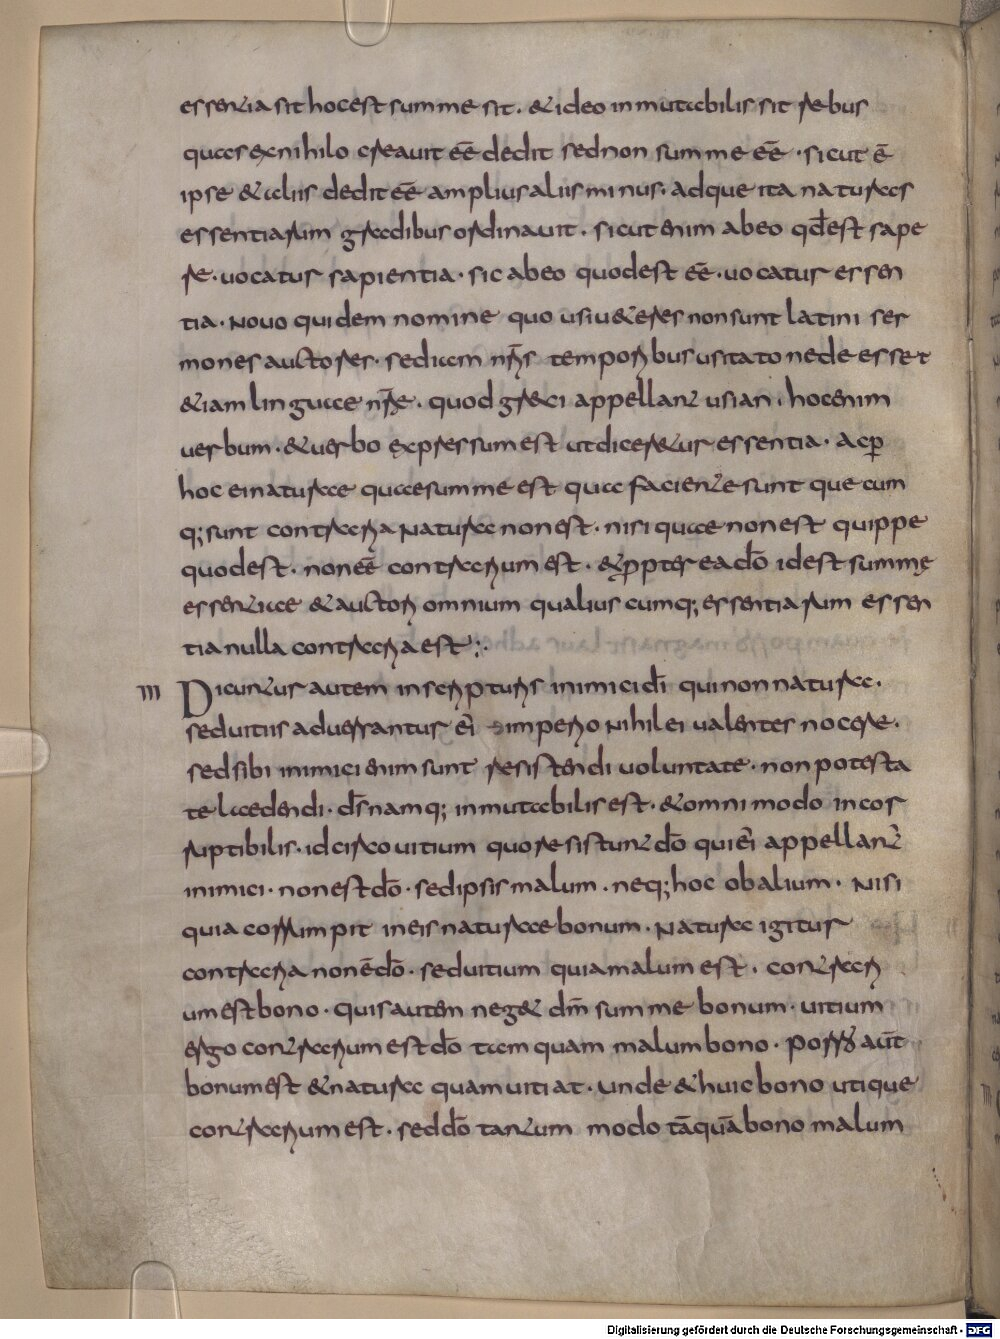 essentia sit hocest summe sit. & ideo inmutabilis sit rebus
quas exnihilo creauit eē dedit sednon summe eē · sicut ē
ipse & aliis dedit eē amplius aliis minus· adque ita naturas
essentiarum gradibus ordinauit . sicut enim abeo qđest sape
re· uocatur sapientia· sic abeo quodest eē· uocatur essen
tia· Nouo quidem nomine quo usi u&eres nonsunt latini ser
mones auctores· sediam nr̄is temporibus usitato nede esset
&iam linguae nr̄ae. quod greci appellant usian. hocenim
uerbum· & uerbo expressum est utdicer&ur essentia· acp̱
hoc ei naturae quaesumme est qua faciente sunt que cum
q; sunt contraria Natura nonest· nisi quae non est quippe
quodest· noneē contrarium est. & ꝓpterea dō idest summę
essentiae & auctori omnium qualiuscumq; essentiarum essen
tia nulla contraria est :·
III Dicuntur autem inscripturis inimici dī qui non natura.
seduitiis aduersantur ei imperio Nihil ei ualentes nocere.
sed sibi inimici enim sunt resistendi uoluntate· non potesta
te laedendi· ds̄ namq; inmutabilis est. & omni modo incor
ruptibilis· idcirco uitium quo resistunt dō qui ei appellant
inimici· non est dō· sed ipsis malum. neq; hoc obalium· Nisi
quia corrumpit ineis naturae bonum. Natura igitur
contraria non ē dō· seduitium quia malum est. contrari
um est bono· quis autem neg& dm̄ summe bonum· uitium
ergo contrarium est dō tam quam malum bono. porro aūt
bonum est & natura quam uitiat· unde & huic bono utique
contrarium est. sed dō tantum modo tāquā bono malum
Digitalisierung gefördert durch die Deutsche Forschungsgemeinschaft - DFG